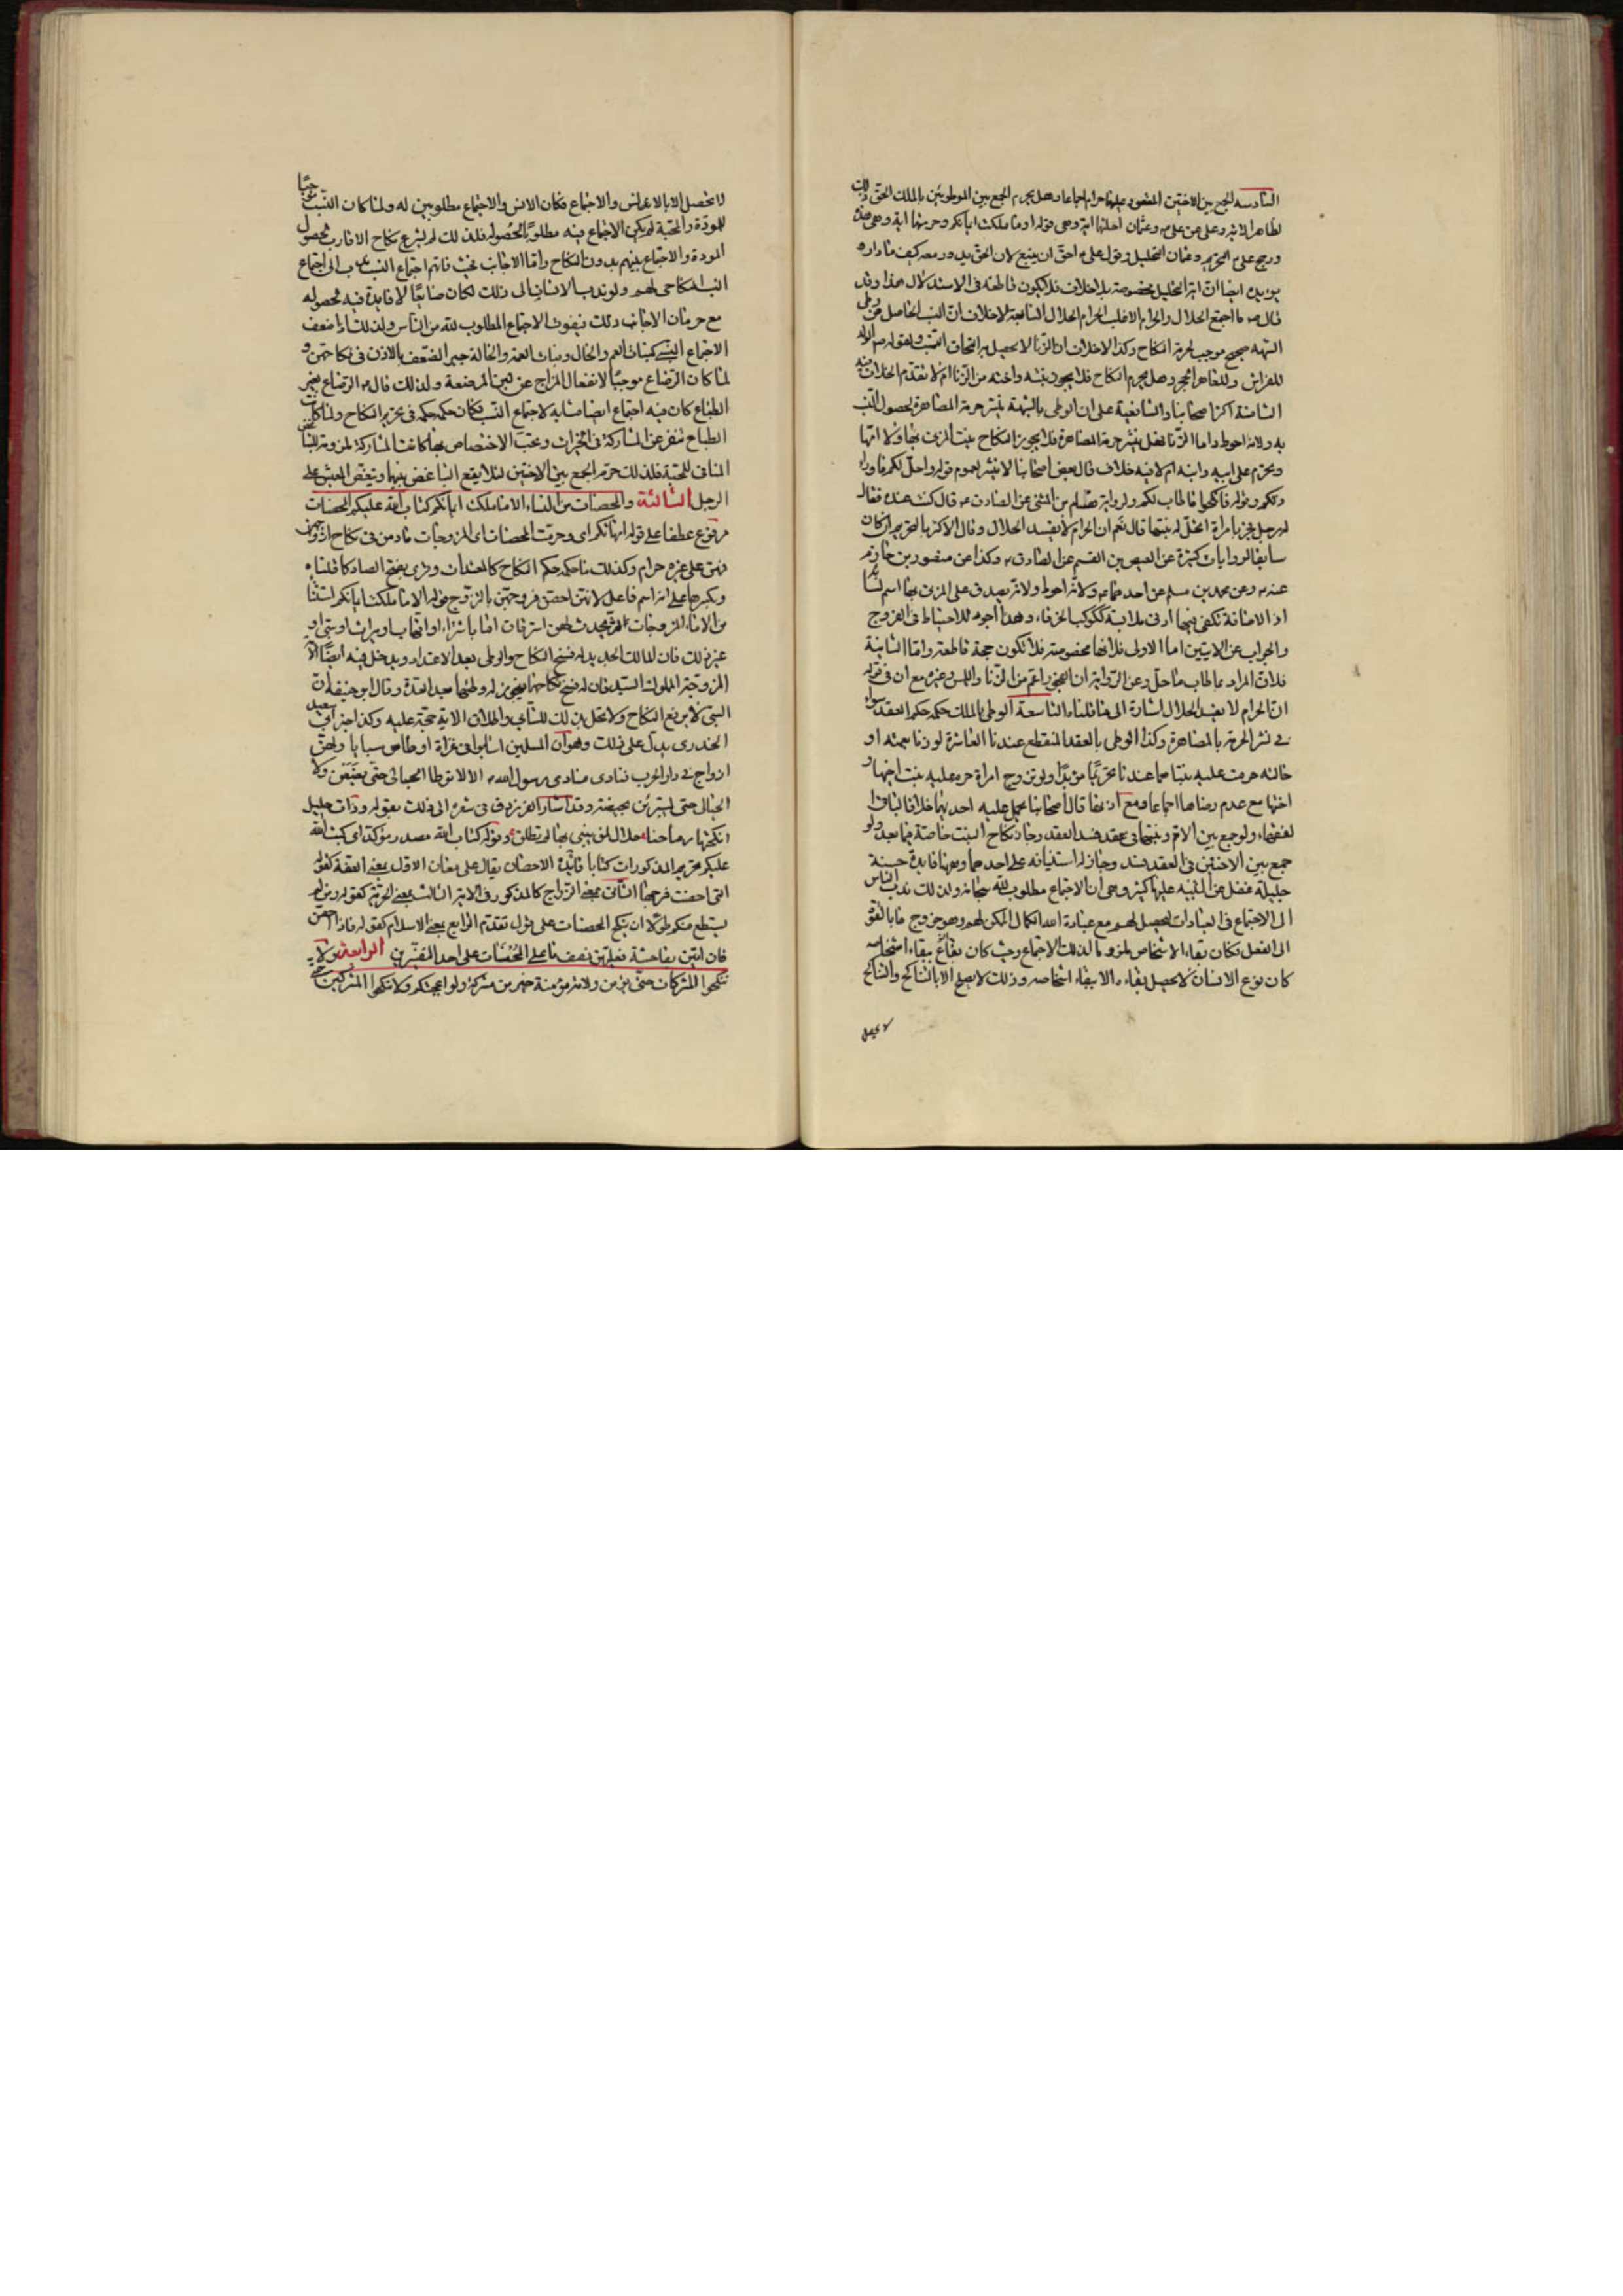 السادسه الجمع بين الاختين المنصوص عليها حرام اجماعا وهل يحرم الجمع بين الموطوئين بالملك الحق ذلك
لظاهر الاية وعلى عن علي ع وعثمان احلتها اية وهى قوله او ما ملكت ايمانكم وحرمتها اية وهى هذه
ورجح علي ع التحريم وعثمان التحليل وقول علي ع احق ان يتبع لان الحق يدور معه كيف ما داره
يؤيده ايضا ان اية التحليل مخصوصة بلا خلاف فلا يكون قاطعة فى الاستدلال هذا وقد
قال ص ما اجتمع الحلال والحرام الا غلب الحرام الحلال السابعة لا خلاف ان النسب الحاصل من وطى
الشبهه صحيح موجب لحرمة النكاح وكذا لا خلاف ان الزنا لا يحصل به التحاق النسب لقوله ص الولد
للفراش وللعاهر الحجر وهل يحرم النكاح فلا يجوز بنته واخته من الزنا ام لا تقدم الخلاف فيه
الثامنة اكثر اصحابنا والشافعية على ان الوطى بالشبهة ينشر حرمة المصاهرة لحصول النسب
به ولانه احوط واما الزنا فهل ينشر حرمة المصاهرة فلا يجوز النكاح بنت المزنى بها ولا امها
ويحرم على ابيه وابنه ام لا فيه خلاف قال بعض اصحابنا لا ينشر لعموم قوله واحل لكم ما وراء
ذلكم وقوله فانكحوا ما طاب لكم ولرواية هشام بن المثنى عن الصادق ع قال كنت عنده فقال
له رجل فجر بامراة اتحل له بنتها قال نعم ان الحرام لا يفسد الحلال وقال الاكثر بالتحريم ان كان
سابقا لروايات كثيرة عن العيص بن القسم عن الصادق ع وكذا عن منصور بن حازم
عنه ع وعن محمد بن مسلم عن احدهما ع ولانه احوط ولانه يصدق على المزنى بها اسم نسائكم
اذ الاضافة تكفى فيها ادنى ملابسة ككوكب الخرقاء وهذا اجود للاحتياط فى الفروج
والجواب عن الايتين اما الاولى فلانها مخصوصة فلا تكون حجة قاطعة واما الثانية
فلان المراد بما طاب ما حل وعن الرواية ان الفجور اعم من الزنا واللمس وغيره مع ان فى قوله
ان الحرام لا يفسد الحلال اشارة الى ما قلناه التاسعة الوطى بالملك حكمه حكم العقد سواء
فى نشر الحرمة بالمصاهرة وكذا الوطى بالعقد المنقطع عندنا العاشرة لو زنا بعمته او
خالته حرمت عليه بنتاهما عندنا تحريما مؤبدا ولو تزوج امراة حرم عليه بنت اخيها و
اختها مع عدم رضاها اجماعا ومع اذنها قال اصحابنا يحل عليه احديهما خلافا لباقى ا
لفقهاء ولو جمع بين الام وبنتها فى عقد فسد العقد وجاز نكاح البنت خاصة فيما بعد ولو
جمع بين الاختين فى العقد فسد وجاز له استينافه على احدهما وههنا فايدة حسنة
جليلة غفل عن التنبيه عليها كثير وهى ان الاجتماع مطلوب لله سبحانه ولذلك ندب الناس
الى الاجتماع فى العبادات ليحصل لهم مع عبادة الله الكمال الممكن لهم وهو خروج ما بالقوة
الى الفعل فكان بقاء الاشخاص ملزوما لذلك الاجتماع وحيث كان بقاء ببقاء اشخاصه
كان نوع الانسان لا يحصل بقاءه الا ببقاء اشخاصه وذلك لا يصلح الا بالتناكح والتناكح
لا يحصل
لا تحصل الا بالاستيناس والاجتماع فكان الانس والاجتماع مطلوبين له ولما كان النسب موجبا
للمودة والمحبة لم يكن الاجتماع فيه مطلوبا لحصوله فلذلك لم يشرع نكاح الاقارب لحصول
المودة والاجتماع بينهم بدون النكاح واما الاجانب فحيث فاتهم اجتماع النسب ندب الى اجتماع
النسب النكاحى لهم ولو ندب الانسان الى ذلك لكان ضايعا لا فايدة فيه لحصوله
مع حرمان الاجانب ذلك فيفوت الاجتماع المطلوب لله من الناس ولذلك لما ضعف
الاجتماع النسبى كبنات العم والخال وبنات العمة والخالة جبر الضعف بالاذن فى نكاحهن و
لما كان الرضاع موجبا لانفعال المزاج عن لبن المرضعة ولذلك قال ع الرضاع يغير
الطباع كان فيه اجتماع ايضا مشابه لاجتماع النسب فكان حكمه حكمه فى تحريم النكاح ولما كانت
الطباع تنفر عن المشاركة فى الخيرات وتحب الاختصاص بها كانت المشاركة ملزومة للتباغض
المنافى للمحبة فلذلك حرم الجمع بين الاختين لئلا يقع التباغض بينهما وينغص العيش على
الرجل الثالثة والمحصنات من النساء الا ما ملكت ايمانكم كتاب الله عليكم المحصنات
مرفوع عطفا على قوله امهاتكم اى وحرمت المحصنات اى المزوجات ما دمن فى نكاح ازواجهن
فهن على غيره حرام وكذلك ما حكمه حكم النكاح كالمعتدات وقرى بفتح الصاد كما قلناه
وبكسرها على انه اسم فاعل لانهن احصن فروجهن بالتزوج قوله الا ما ملكت ايمانكم استثناء
من الاماء المزوجات لمن يحدث لهن استرقاق اما بشراء او اتهاب او ميراث او سبى او
غير ذلك فان للمالك الجديد له فسخ النكاح والوطى بعد الاعتداد ويدخل فيه ايضا الامة
المزوجة المملوك السيد فان له فسخ نكاحها فيجوز له وطئها بعد العدة وقال ابو حنيفة ان
السبى لا يرفع النكاح ولا تحل بذلك للسابى واطلاق الاية حجة عليه وكذا خبر ابى سعيد
الخدرى يدل على ذلك وهو ان المسلمين اصابوا فى غزاة اوطاس سبايا ولهن
ازواج فى دار الحرب فنادى منادى رسول الله ص الا لا توطا الحبالى حتى يضعن ولا
الحيال حتى يستبرئن بحيضة وقد اشار الفرزدق فى شعره الى ذلك بقوله وذات حليل
انكحتها رماحنا حلال لمن يبنى بها لم تطلق وقوله كتاب الله مصدر مؤكد اى كتب الله
عليكم تحريم المذكورات كتابا فائدة الاحصان يقال على معان الاول بمعنى العفة كقوله
التى احصنت فرجها الثانى بمعنى الزواج كالمذكور فى الاية الثالث بمعنى الحرية كقوله ومن لم
يستطع منكم طولا ان ينكح المحصنات على قول تقدم الرابع بمعنى الاسلام كقوله فاذا احصن
فان اتين بفاحشة فعليهن نصف ما على المحصنات على احد التفسيرين الرابعة ولا
تنكحوا المشركات حتى يؤمن ولامة مؤمنة خير من مشركة ولو اعجبتكم ولا تنكحوا المشركين حتى